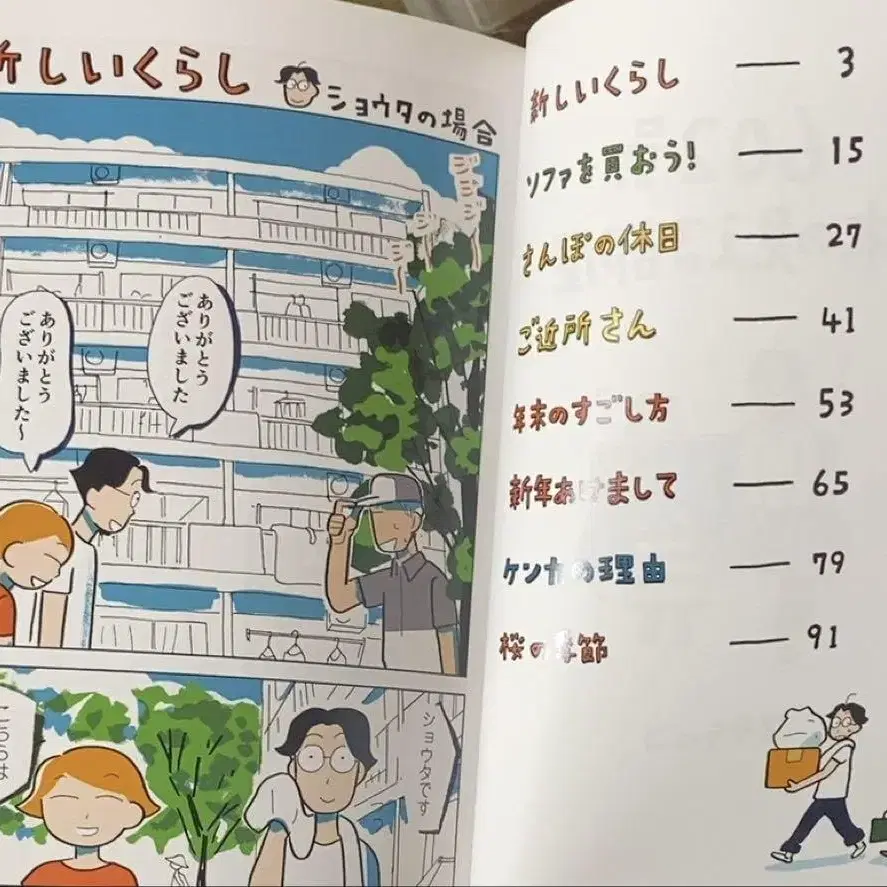 しいくらし
ショウタの場合
ジジジジ
ジ
ジジ
ありがとう
ございました
ありがとう
ございました〜
ショウタです
こちらは
新しいくらし — 3
ソファを買おう! — 15
さんぽの休日 — 27
ご近所さん — 41
年末のすごし方 — 53
新年あけまして — 65
ケンカの理由 — 79
桜の季節 — 91